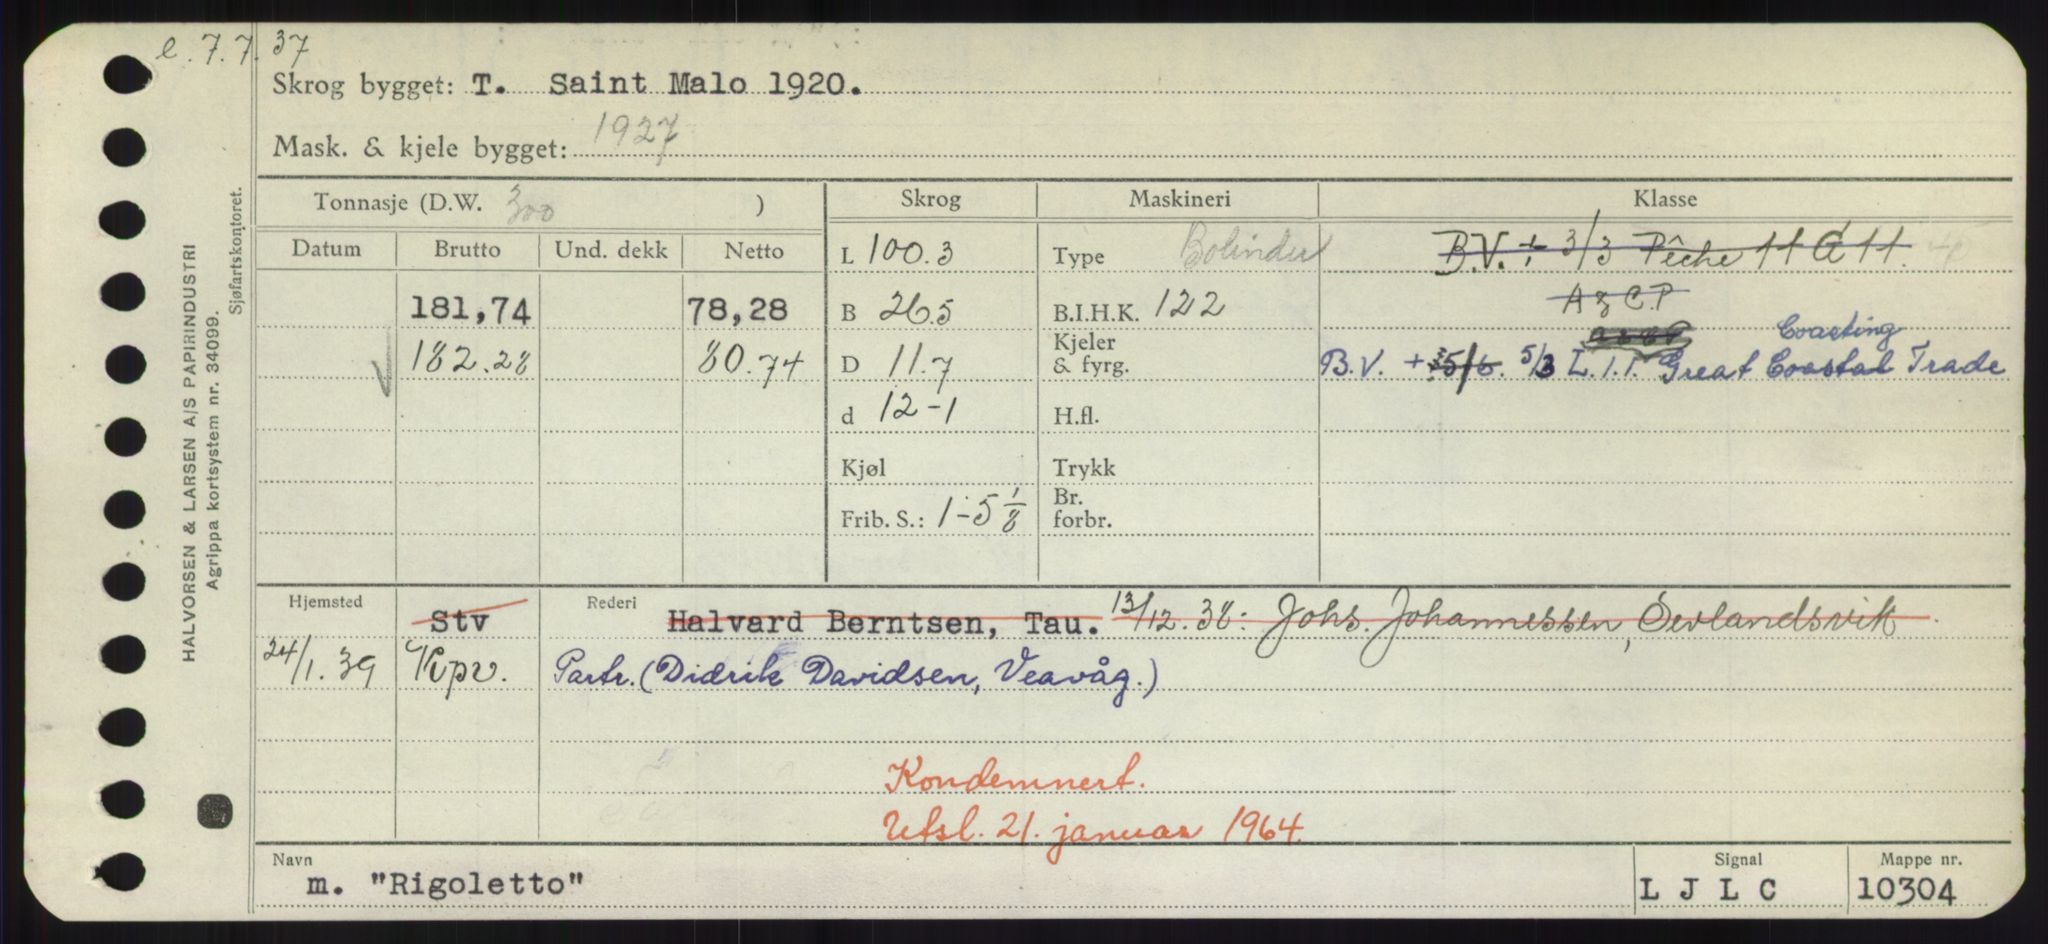 e. 7.7.37
Skrog bygget: T. Saint Malo 1920.
Mask. & kjele bygget: 1927
Tonnasje (D.W. 300 ) Skrog Maskineri Klasse
Datum Brutto Und. dekk Netto L 100.3 Type Bolinder B.V. + 3/3 Pêche 11 G 11.
181,74 78,28 B 26.5 B.I.H.K. 122 A & C.P
Coasting
182.28 80.74 D 11.7 Kjeler & fyrg. B.V. + 5/6. 5/3 L.1.1. Great Coastal Trade
d 12-1 H.fl.
Kjøl Trykk
Frib. S.: 1-5 1/8 Br. forbr.
Hjemsted Stv Rederi Halvard Berntsen, Tau. 13/12.38: Johs. Johannessen, Sevlandsvik
24/1.39 Kopv. Partr. (Didrik Davidsen, Veavåg.)
Kondemnert.
Utsl. 21. januar 1964.
Navn Signal Mappe nr.
m. "Rigoletto" L J L C 10304
HALVORSEN & LARSEN A/S PAPIRINDUSTRI
Agrippa kortsystem nr. 34099.
Sjøfartskontoret.